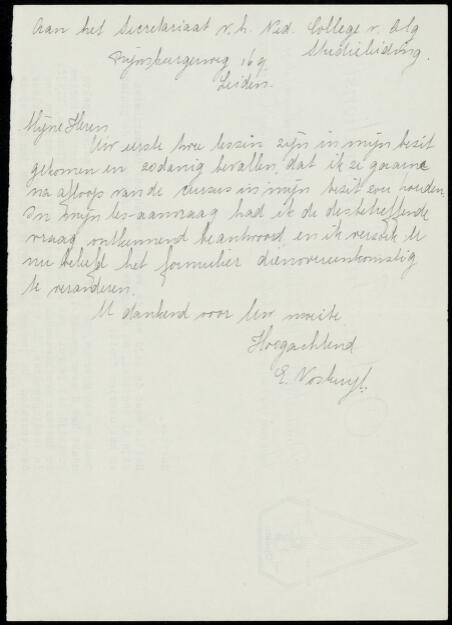 Aan het Secretariaat v.h. Ned. College v. Alg
Studieleiding.
Rijnsburgerweg 169
Leiden.
Mijne Heren
Uw eerste twee lessen zijn in mijn bezit
gekomen en zodanig bevallen, dat ik ze gaarne
na afloop van de cursus in mijn bezit zou houden.
In mijn les-aanvraag had ik de desbetreffende
vraag ontkennend beantwoord, en ik verzoek U
nu beleefd het formulier dienovereenkomstig
te veranderen.
U dankend voor Uw moeite
Hoogachtend
E. Voskuyl.